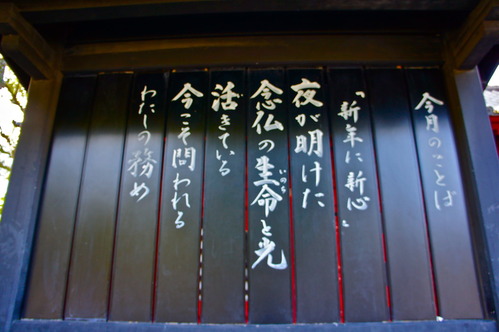 今月のことば
「新年に新心」
夜が明けた
念仏の生命と光
いのち
活きている
今こそ問われる
わたしの務め